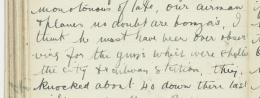 monotonous of late, our airman
& planes no doubt are bonza's, I
think he must have been over obser
ving for the guns which were shelling
the city & railway station, they
knocked about 40 down there last